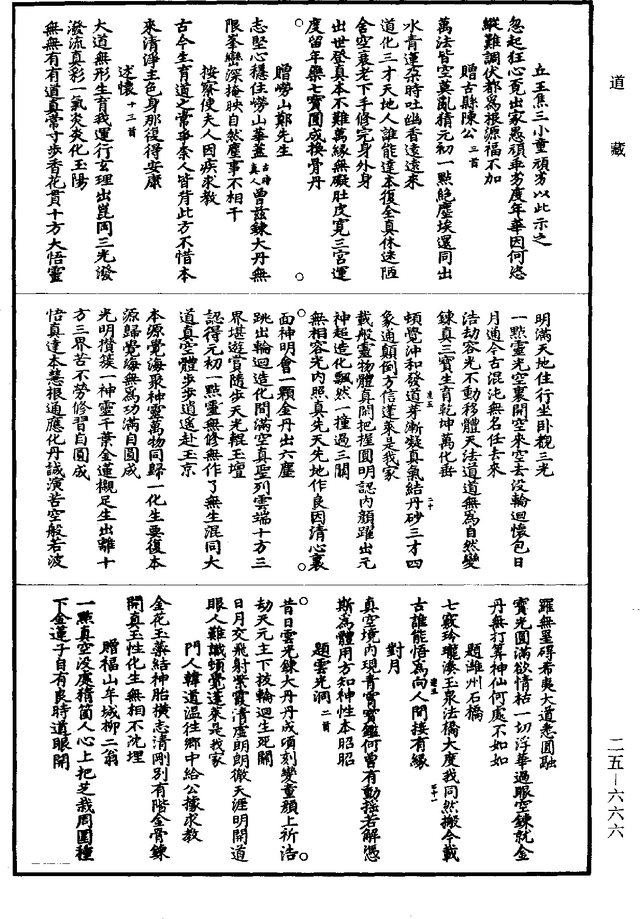 道藏
丘王焦三小童頑劣以此示之
忽起狂心竟出家愚頑乖劣度年華因何恣
縱難調伏都爲根源福不加
贈古縣陳公二首
萬法皆空莫亂猜元初一點絶塵埃還同出
水青蓮朶時吐幽香遠遠來
道化三才天地人誰能達本復全真休迷陋
舍空衰老下手修完身外身
出世登真本不難萬緣無礙肚皮寬三宮運
度留年藥七寶圓成換骨丹
贈嶗山鄭先生
志堅心穩住嶗山華蓋古蹟真人曾茲鍊大丹無
限峯巒深掩映自然塵事不相干
按察使夫人因疾求教
古今生育道之常爭奈人皆背此方不惜本
來清淨主色身那復得安康
述懷十三首
大道無形生育我運行玄理出崑岡三光潑
潑流真彩一氣炎炎化玉陽
無無有有道真常寸步香花貫十方大悟靈
明滿天地住行坐卧覩三光
一點靈光空裏開空來空去没輪迴懷包日
月通今古混沌無名任去來
浩劫容光不動移體天法道道無爲自然變
鍊真三寶生育乾坤萬化垂
頓覺沖和發道芽漸凝真氣結丹砂三才四
象通顛倒方信蓬萊是我家
載般靈物體真閑把握圓明認内顔躍出元
神超造化飄然一撞過三關
無相容光内照真先天先地作良因清心裏
面神明會一顆金丹出六塵
跳出輪迴造化間滿空真聖列雲端十方三
界堪遊賞隨步天光輥玉壇
認得元初一點靈無修無作了無生混同大
道真空體步步逍遥赴玉京
本源覺海聚神靈萬物同歸一化生要復本
源歸覺海無爲功滿自圓成
光明攢簇一神靈千葉金蓮襯足生出離十
方三界苦不勞修習自圓成
悟真達本慧根通應化丹誠演苦空般若波
羅無罣碍希夷大道悉圓融
寶光圓滿欲情枯一切浮華過眼空鍊就金
丹無打算神仙何處不如如
題濰州石橋
七竅玲瓏湊玉泉法橋大度我同然搬今載
古誰能悟爲向人間接有緣
對月
真空境内現青霄寶鑑何曾有動摇若解憑
斯爲體用方知神性本昭昭
題雲光洞二首
昔日雲光鍊大丹丹成頃刻變童顔上祈浩
劫天元主下救輪迴生死關
日月交飛射紫霞清虛朗朗徹天涯明開道
眼人難識頓覺蓬萊是我家
門人韓道温住鄉中給公據求教
金花玉蘂結神胎橫志清剛别有階全骨鍊
開真玉性化生無相不沉埋
贈福山牟城柳二翁
一點真空没處猜箇人心上把芝栽周圓種
下金蓮子自有良時道眼開
二五—六六六